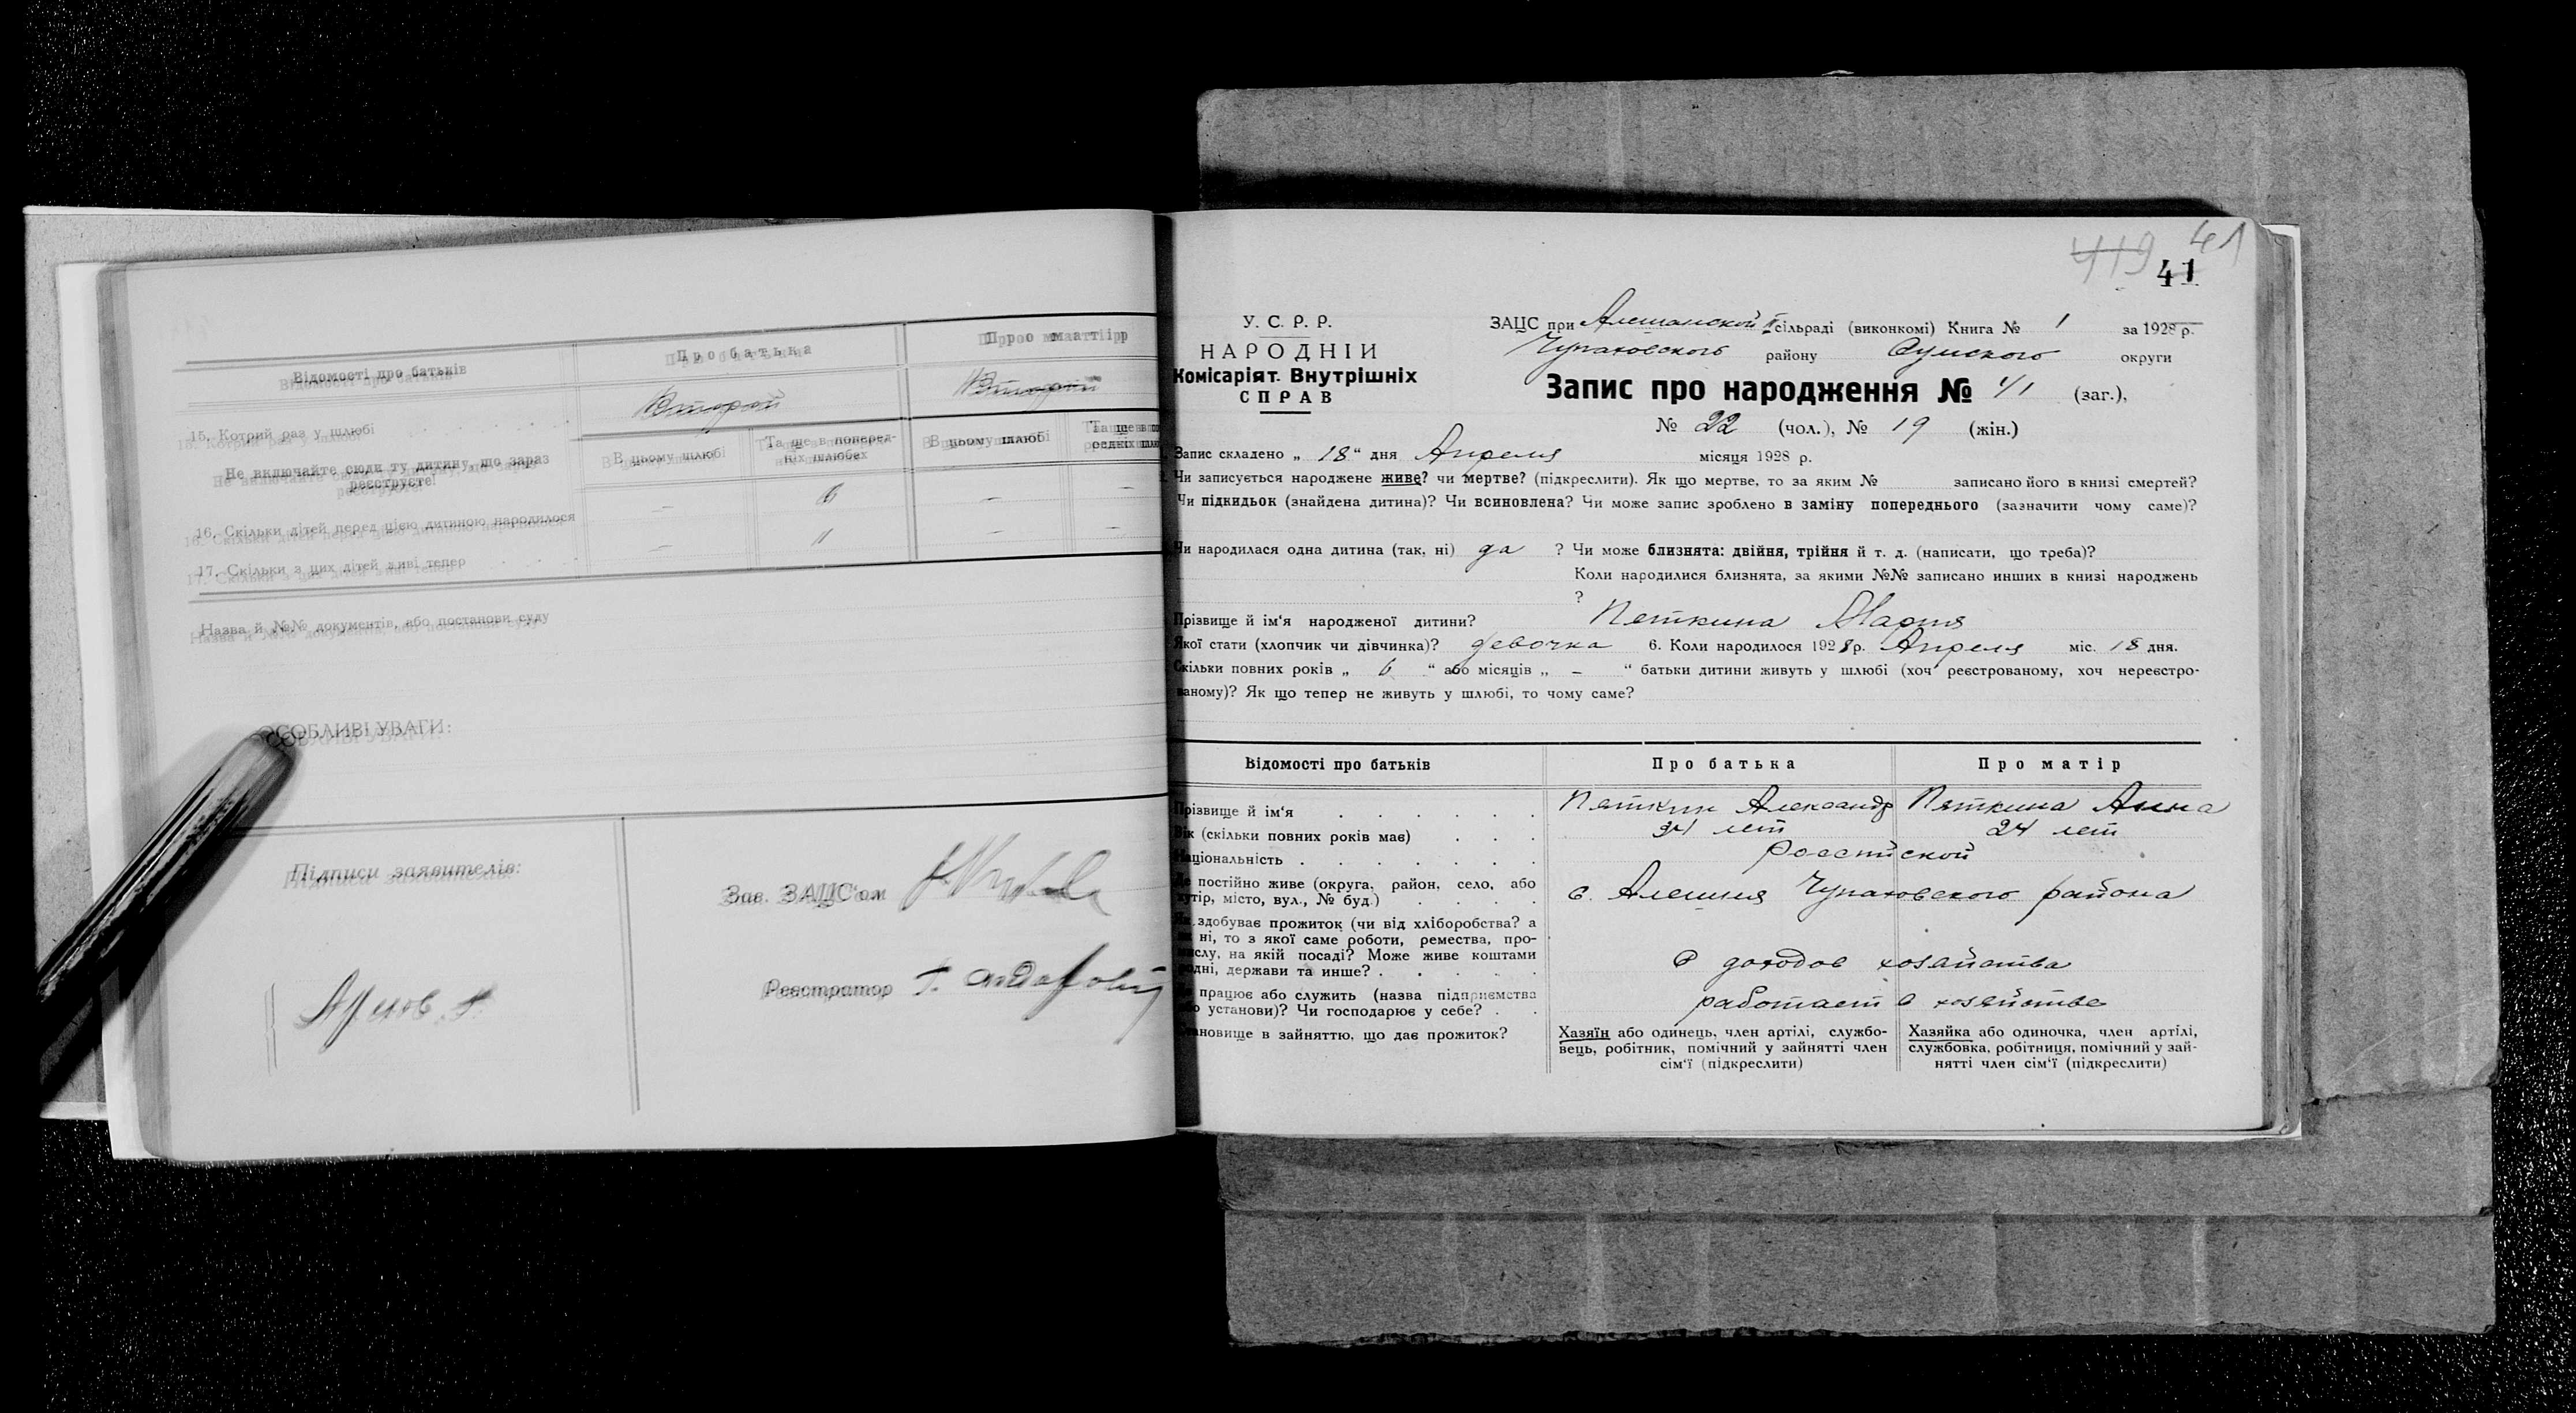 Відомості про батьків
Про батька
Про матір
15. Котрий раз у шлюбі
Второй
Второй
Не включайте сюди ту дитину, що зараз реєструєте!
В цьому шлюбі
Та ще в поперед-
ніх шлюбах
В цьому шлюбі
16. Скільки дітей перед цією дитиною народилося
—
6
—
—
17. Скільки з цих дітей живі тепер
—
—
—
Назва й №№ документів, або постанови суду
ОСОБЛИВІ УВАГИ:
Підписи заявителів:
Зав. ЗАЦС'ом
Реєстратор
419 41
41
У. С. Р. Р.
НАРОДНІЙ
Комісаріят Внутрішніх
СПРАВ
ЗАЦС при Алешанской II сільраді (виконкомі) Книга № 1 за 1928 р.
Чупаховского району Сумского округи
Запис про народження № 41 (заг.),
№ 22 (чол.), № 19 (жін.)
Запис складено „ 18 “ дня Апреля місяця 1928 р.
Чи записується народжене живе? чи мертве? (підкреслити). Як що мертве, то за яким № записано його в книзі смертей?
Чи підкидьок (знайдена дитина)? Чи всиновлена? Чи може запис зроблено в заміну попереднього (зазначити чому саме)?
Чи народилася одна дитина (так, ні) да ? Чи може близнята: двійня, трійня й т. д. (написати, що треба)?
Коли народилися близнята, за якими №№ записано инших в книзі народжень
?
Прізвище й ім'я народженої дитини? Пяткина Мария
Якої стати (хлопчик чи дівчинка)? девочка 6. Коли народилося 1928 р. Апреля міс. 18 дня.
Скільки повних років „ 6 “ або місяців „ – “ батьки дитини живуть у шлюбі (хоч реєстрованому, хоч нереєстро-
ваному)? Як що тепер не живуть у шлюбі, то чому саме?
Відомості про батьків
Про батька
Про матір
Прізвище й ім'я
Пяткин Александр
Пяткина Анна
Вік (скільки повних років має)
34 лет
24 лет
Національність
Россійской
Де постійно живе (округа, район, село, або
хутір, місто, вул., № буд.)
с. Алешня Чупаховского района
здобуває прожиток (чи від хліборобства? а
ні, то з якої саме роботи, ремества, про-
мислу, на якій посаді? Може живе коштами
родні, держави та инше?
С доходов хозяйства
працює або служить (назва підприємства
або установи)? Чи господарює у себе?
работает в хозяйстве
Становище в зайняттю, що дає прожиток?
Хазяїн або одинець, член артілі, службо-
вець, робітник, помічний у зайнятті член
сім'ї (підкреслити)
Хазяйка або одиночка, член артілі,
службовка, робітниця, помічний у зай-
нятті член сім'ї (підкреслити)